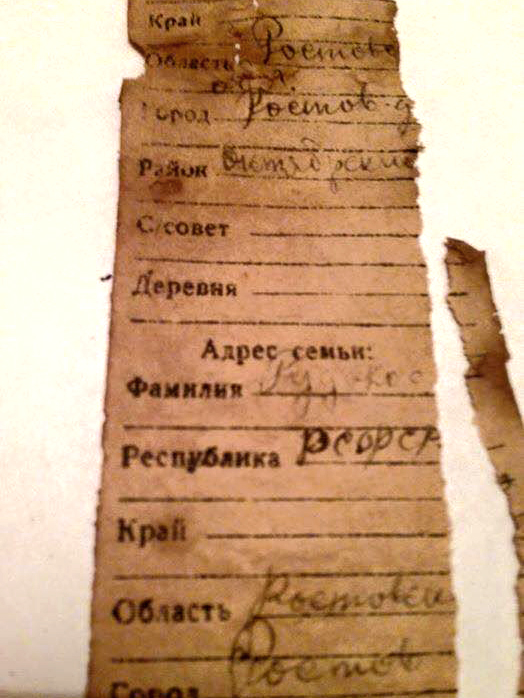 Край
Область Ростовс
обл.
Город Ростов-д
Район Октябрьский
С/совет
Деревня
Адрес семьи:
Фамилия
Республика РСФСР
Край
Область Ростовск
Ростов
Город